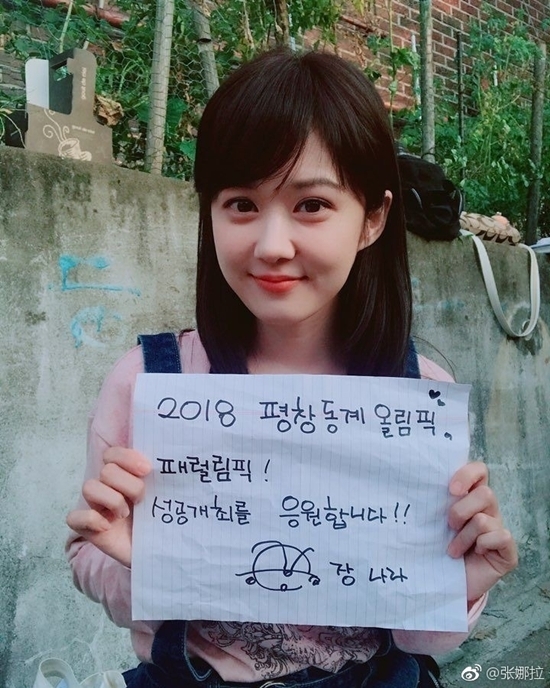 2018 평창동계올림픽
패럴림픽!
성공개최를 응원합니다!!
장 나라
@张娜拉